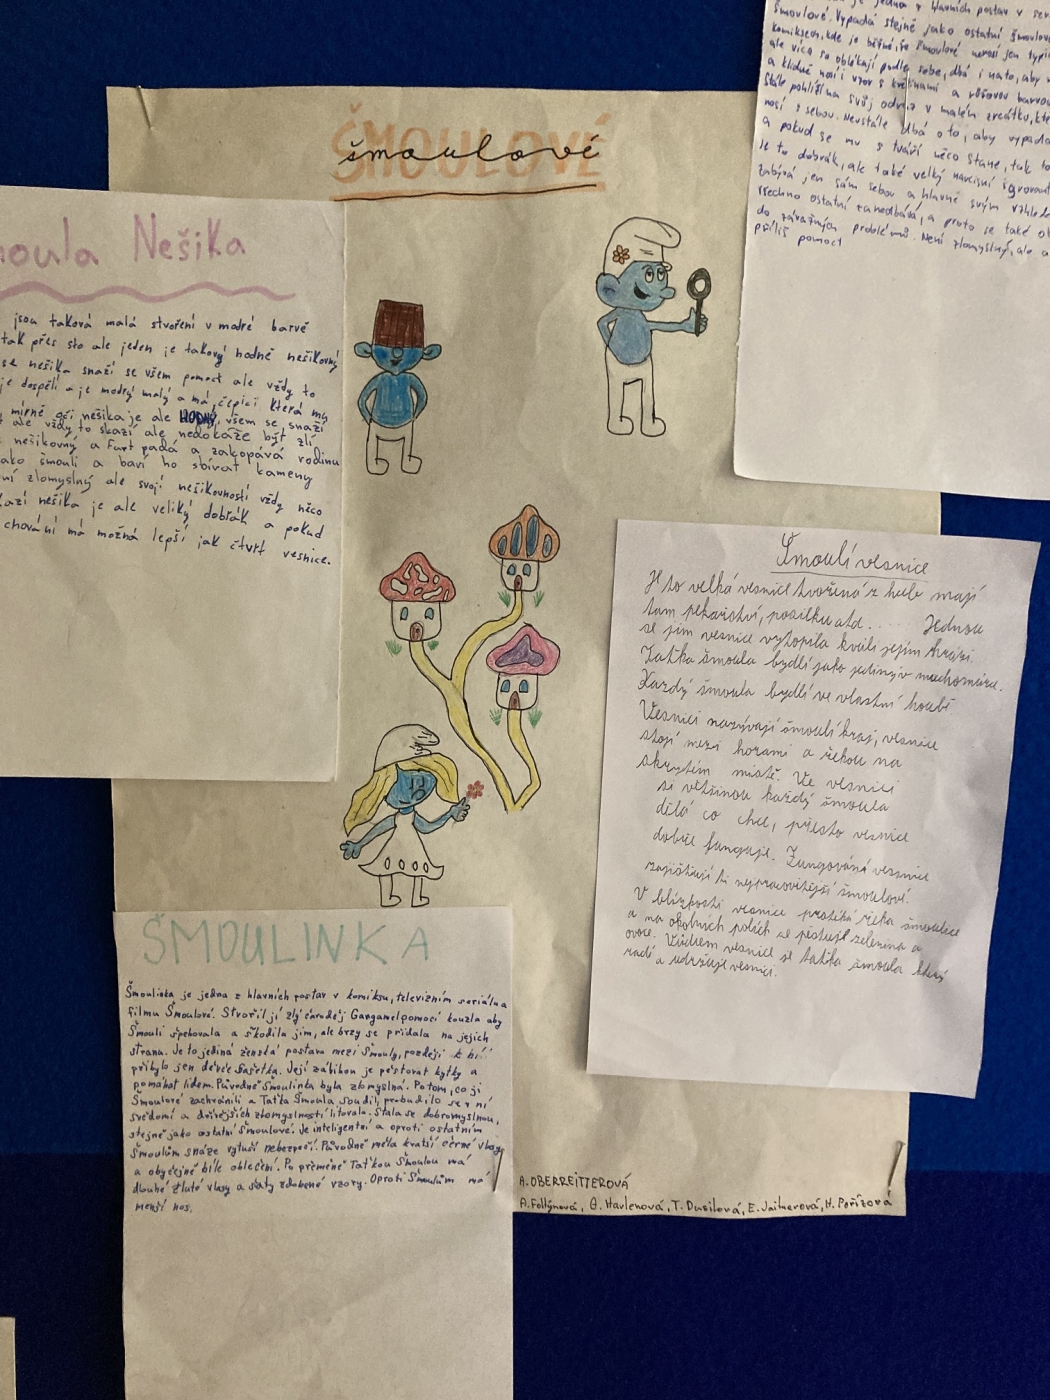 ŠMOULOVÉ
šmoulové
je jedna z hlavních postav v
Šmoulové. Vypadá stejně jako ostatní
komiksech, kde je běžné, že Šmoulové nenosí jen
ale více se oblékají podle sebe, dbá i na to, aby
a klidně nosí i vzor s květinami a růžovou barvou
Stále pohlíží na svůj odraz v malém zrcátku,
nosí s sebou. Neustále dbá o to, aby
a pokud se mu s tváří něco stane, tak to
Je to dobrák, ale také velký narcisní
zabývá jen sám sebou a hlavně svým
všechno ostatní zanedbává, a proto se také
do závažných problémů. Není zlomyslný, ale
příliš pomoct
Nešika
jsou taková malá stvoření v modré barvě
tak přes sto ale jeden je takový hodně nešikovný
se nešika snaží se všem pomoct ale vždy to
je dospělí a je modrý malý a má čepici která mu
mírně oči nešika je ale HODNÝ, všem se snaží
ale vždy to skazí ale nedokáže být zlí
nešikovný a furt padá a zakopává rodinu
jako šmouli a baví ho sbírat kameny
ní zlomyslný ale svojí nešikovností vždy něco
kazí nešika je ale veliký dobřák a pokud
chování má možná lepší jak čtvrt vesnice.
Šmoulí vesnice
Je to velká vesnice tvořená z hub mají
tam pekařství, posilku atd.... Jednou
se jim vesnice vytopila kvůli jejím hrázi.
Taťka šmoula bydlí jako jediný v muchomůrce.
Každý šmoula bydlí ve vlastní houbě
Vesnici nazývají šmoulí kraj, vesnice
stojí mezi horami a řekou na
skrytém místě. Ve vesnici
si většinou každý šmoula
dělá co chce, přesto vesnice
dobře funguje. Fungování vesnice
zajištují ti nejpracovitější šmoulové.
V blízkosti vesnice protéká řeka šmoulice
a na okolních polích se pěstuje zelenina a
ovoce. Vůdcem vesnice je taťka šmoula který
radí a udržuje vesnici.
ŠMOULINKA
Šmoulinka je jedna z hlavních postav v komiksu, televizním seriálu a
filmu Šmoulové. Stvořil jí zlý čaroděj Gargamel pomocí kouzla aby
Šmouli špehovala a škodila jim, ale brzy se přidala na jejich
stranu. Je to jediná ženská postava mezi Šmouly, později k
přibylo jen děvče Sašetka. Její zábibou je pěstovat kytky a
pomáhat lidem. Původně Šmoulinka byla zlomyslná. Potom, co ji
Šmoulové zachránili a Taťka Šmoula soudil, probudilo se v ní
svědomí a dřívějších zlomyslností litovala. Stala se dobromyslnou,
stejně jako ostatní Šmoulové. Je inteligentní a oproti ostatním
Šmoulům snáze vytuší nebezpečí. Původně měla kratší černé vlasy
a obyčejné bílé oblečení. Po přeměně Taťkou Šmoulou má
dlouhé žluté vlasy a šaty zdobené vzory. Oproti Šmoulům má
menší nos.
A. OBERREITTEROVÁ
A. Foltýnová, G. Havlenová, T. Dusilová, E. Jaitnerová, H. Pořízová